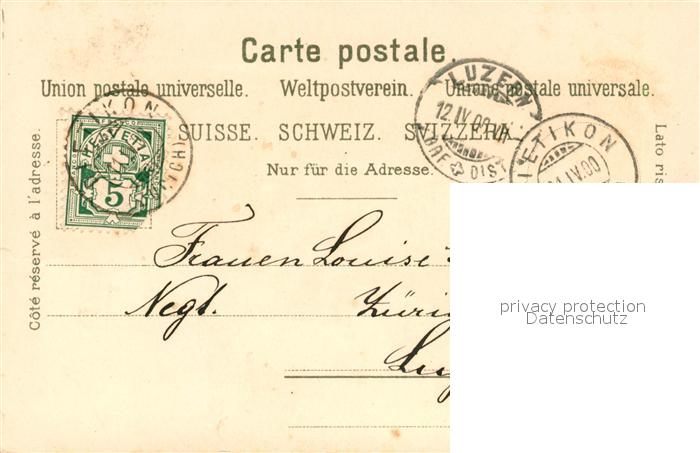 Carte postale.
Union postale universelle. Weltpostverein. Unione postale universale.
SUISSE. SCHWEIZ. SVIZZERA.
Nur für die Adresse.
Côté réservé à l'adresse.
Lato ris
HELVETIA
5
LUZERN
12.IV.00
DIST
IETIKON
IV.00
KON
Frauen Louise
Negt. Züri
Lu
privacy protection
Datenschutz